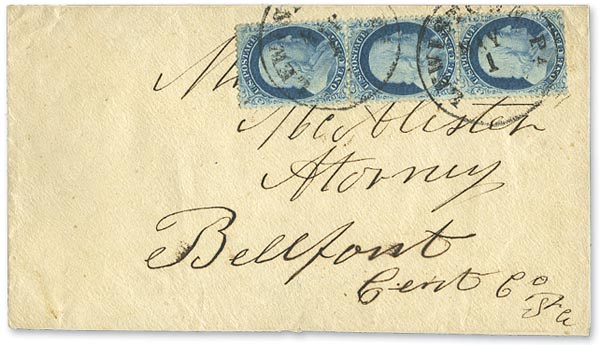 Mr
McAlister
Atorney
Bellfont
Cent Co
Pa